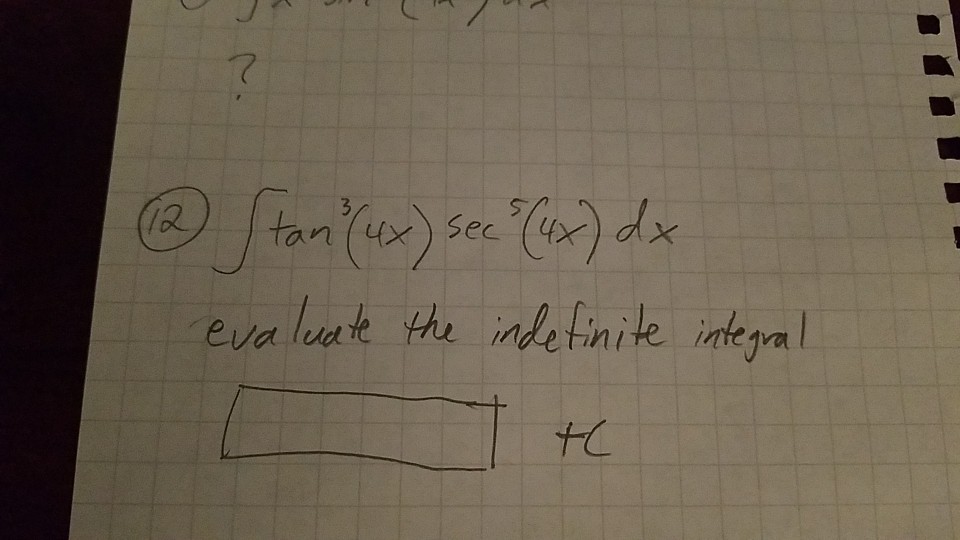 ?
12 ∫tan³(4x) sec⁵(4x) dx
evaluate the indefinite integral
+C